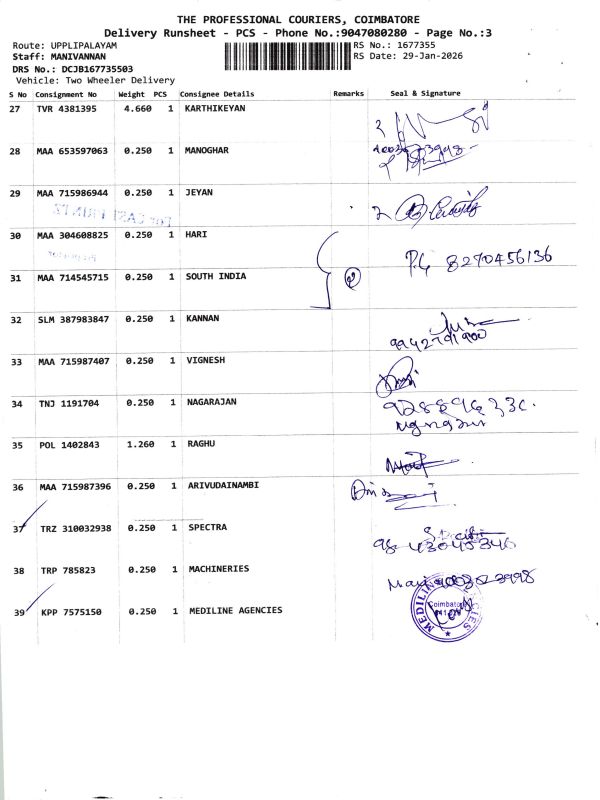 THE PROFESSIONAL COURIERS, COIMBATORE
Delivery Runsheet - PCS - Phone No.:9047080280 - Page No.:3
Route: UPPLIPALAYAM
RS No.: 1677355
Staff: MANIVANNAN
RS Date: 29-Jan-2026
DRS No.: DCJB167735503
Vehicle: Two Wheeler Delivery
S No Consignment No Weight PCS Consignee Details Remarks Seal & Signature
27 TVR 4381395 4.660 1 KARTHIKEYAN
28 MAA 653597063 0.250 1 MANOGHAR
29 MAA 715986944 0.250 1 JEYAN
30 MAA 304608825 0.250 1 HARI
8270456136
31 MAA 714545715 0.250 1 SOUTH INDIA
32 SLM 387983847 0.250 1 KANNAN
9942791900
33 MAA 715987407 0.250 1 VIGNESH
34 TNJ 1191704 0.250 1 NAGARAJAN
35 POL 1402843 1.260 1 RAGHU
36 MAA 715987396 0.250 1 ARIVUDAINAMBI
37 TRZ 310032938 0.250 1 SPECTRA
98 43045346
38 TRP 785823 0.250 1 MACHINERIES
39 KPP 7575150 0.250 1 MEDILINE AGENCIES
Coimbatore